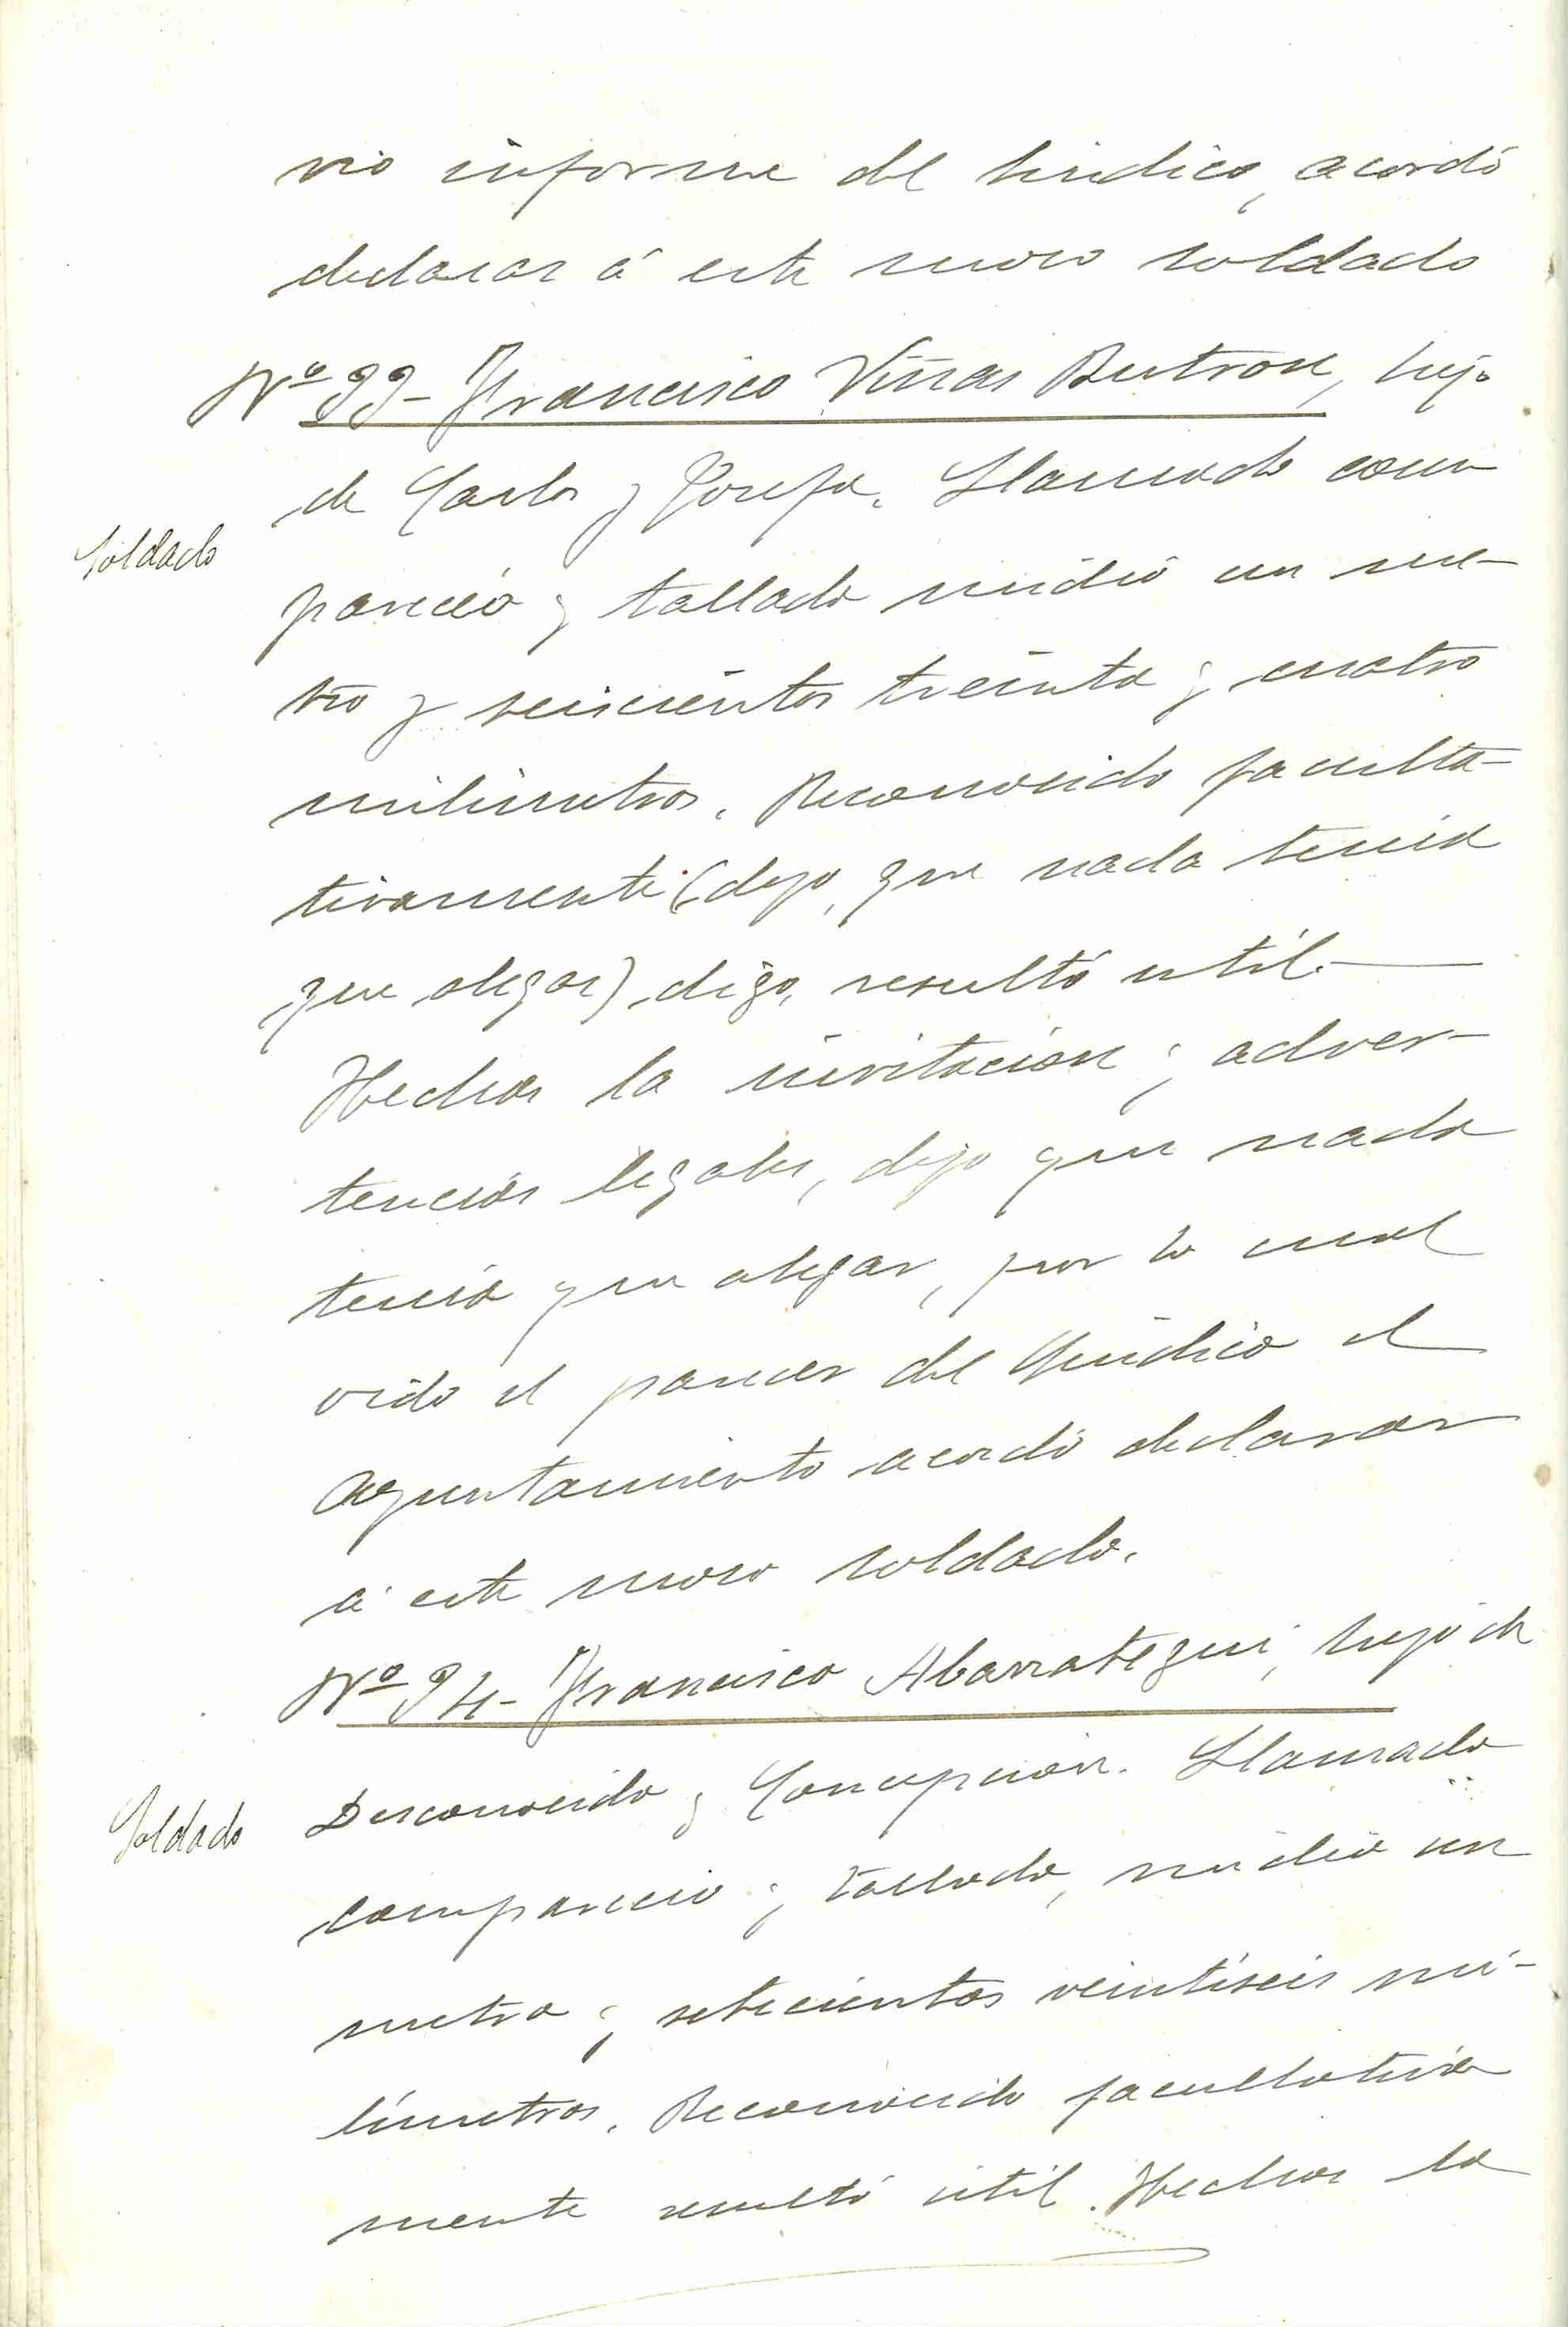 vio informe del sindico, acordó
declarar á este mozo soldado
Nº 33- Francisco Viñas Butron, hijo
de Carlos y Josefa. Llamado com
Soldado
pareció y tallado midió un me-
tro y seiscientos treinta y cuatro
milimetros. Reconocido faculta-
tivamente (dijo, que nada tenia
que alegar) digo, resultó util.—
Hechas la invitacion y adver-
tencias legales, dijo que nada
tenia que alegar, por lo cual
oido el parecer del Sindico el
Ayuntamiento acordó declarar
á este mozo soldado.
Nº 34- Francisco Abarrategui, hijo de
Desconocido y Concepcion. Llamado
Soldado
compareció y tallado, midió un
metro y setecientos veintiseis mi-
límetros. Reconocido facultativa
mente resultó útil. Hechas la